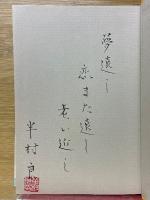 夢遠し
恋また遠し
老い近し
半村良